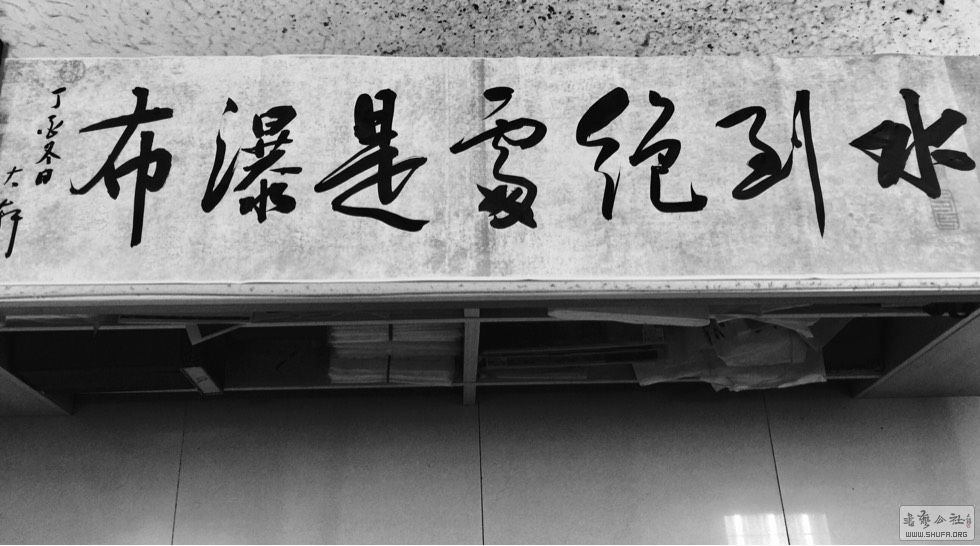 水到绝處是瀑布
丁酉冬日
大軒
書藝公社
WWW.SHUFA.ORG